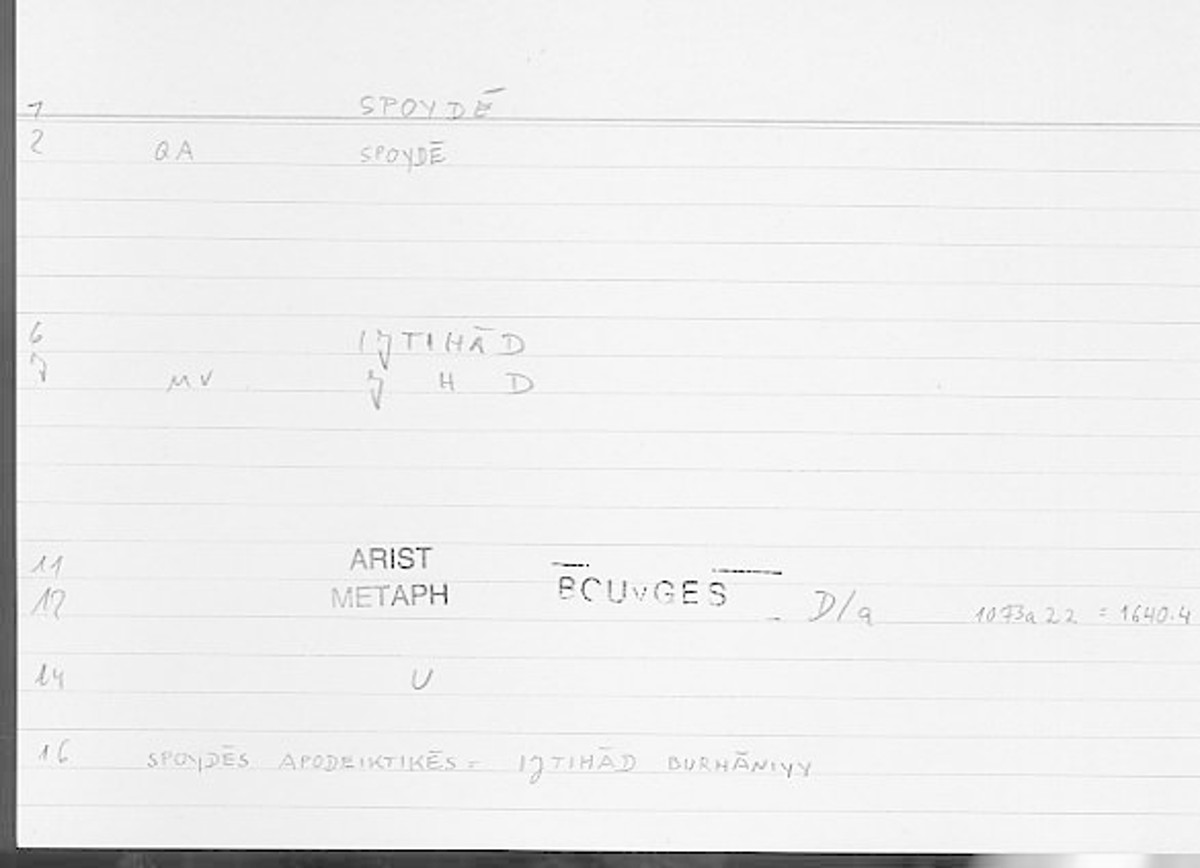 1 SPOYDĒ
2 QA SPOYDĒ
6 IJTIHĀD
7 MV J H D
11 ARIST
12 METAPH BOUYGES D/a 1073a22 = 1640.4
14 U
16 SPOYDĒS APODEIKTIKĒS = IJTIHĀD BURHĀNIYY